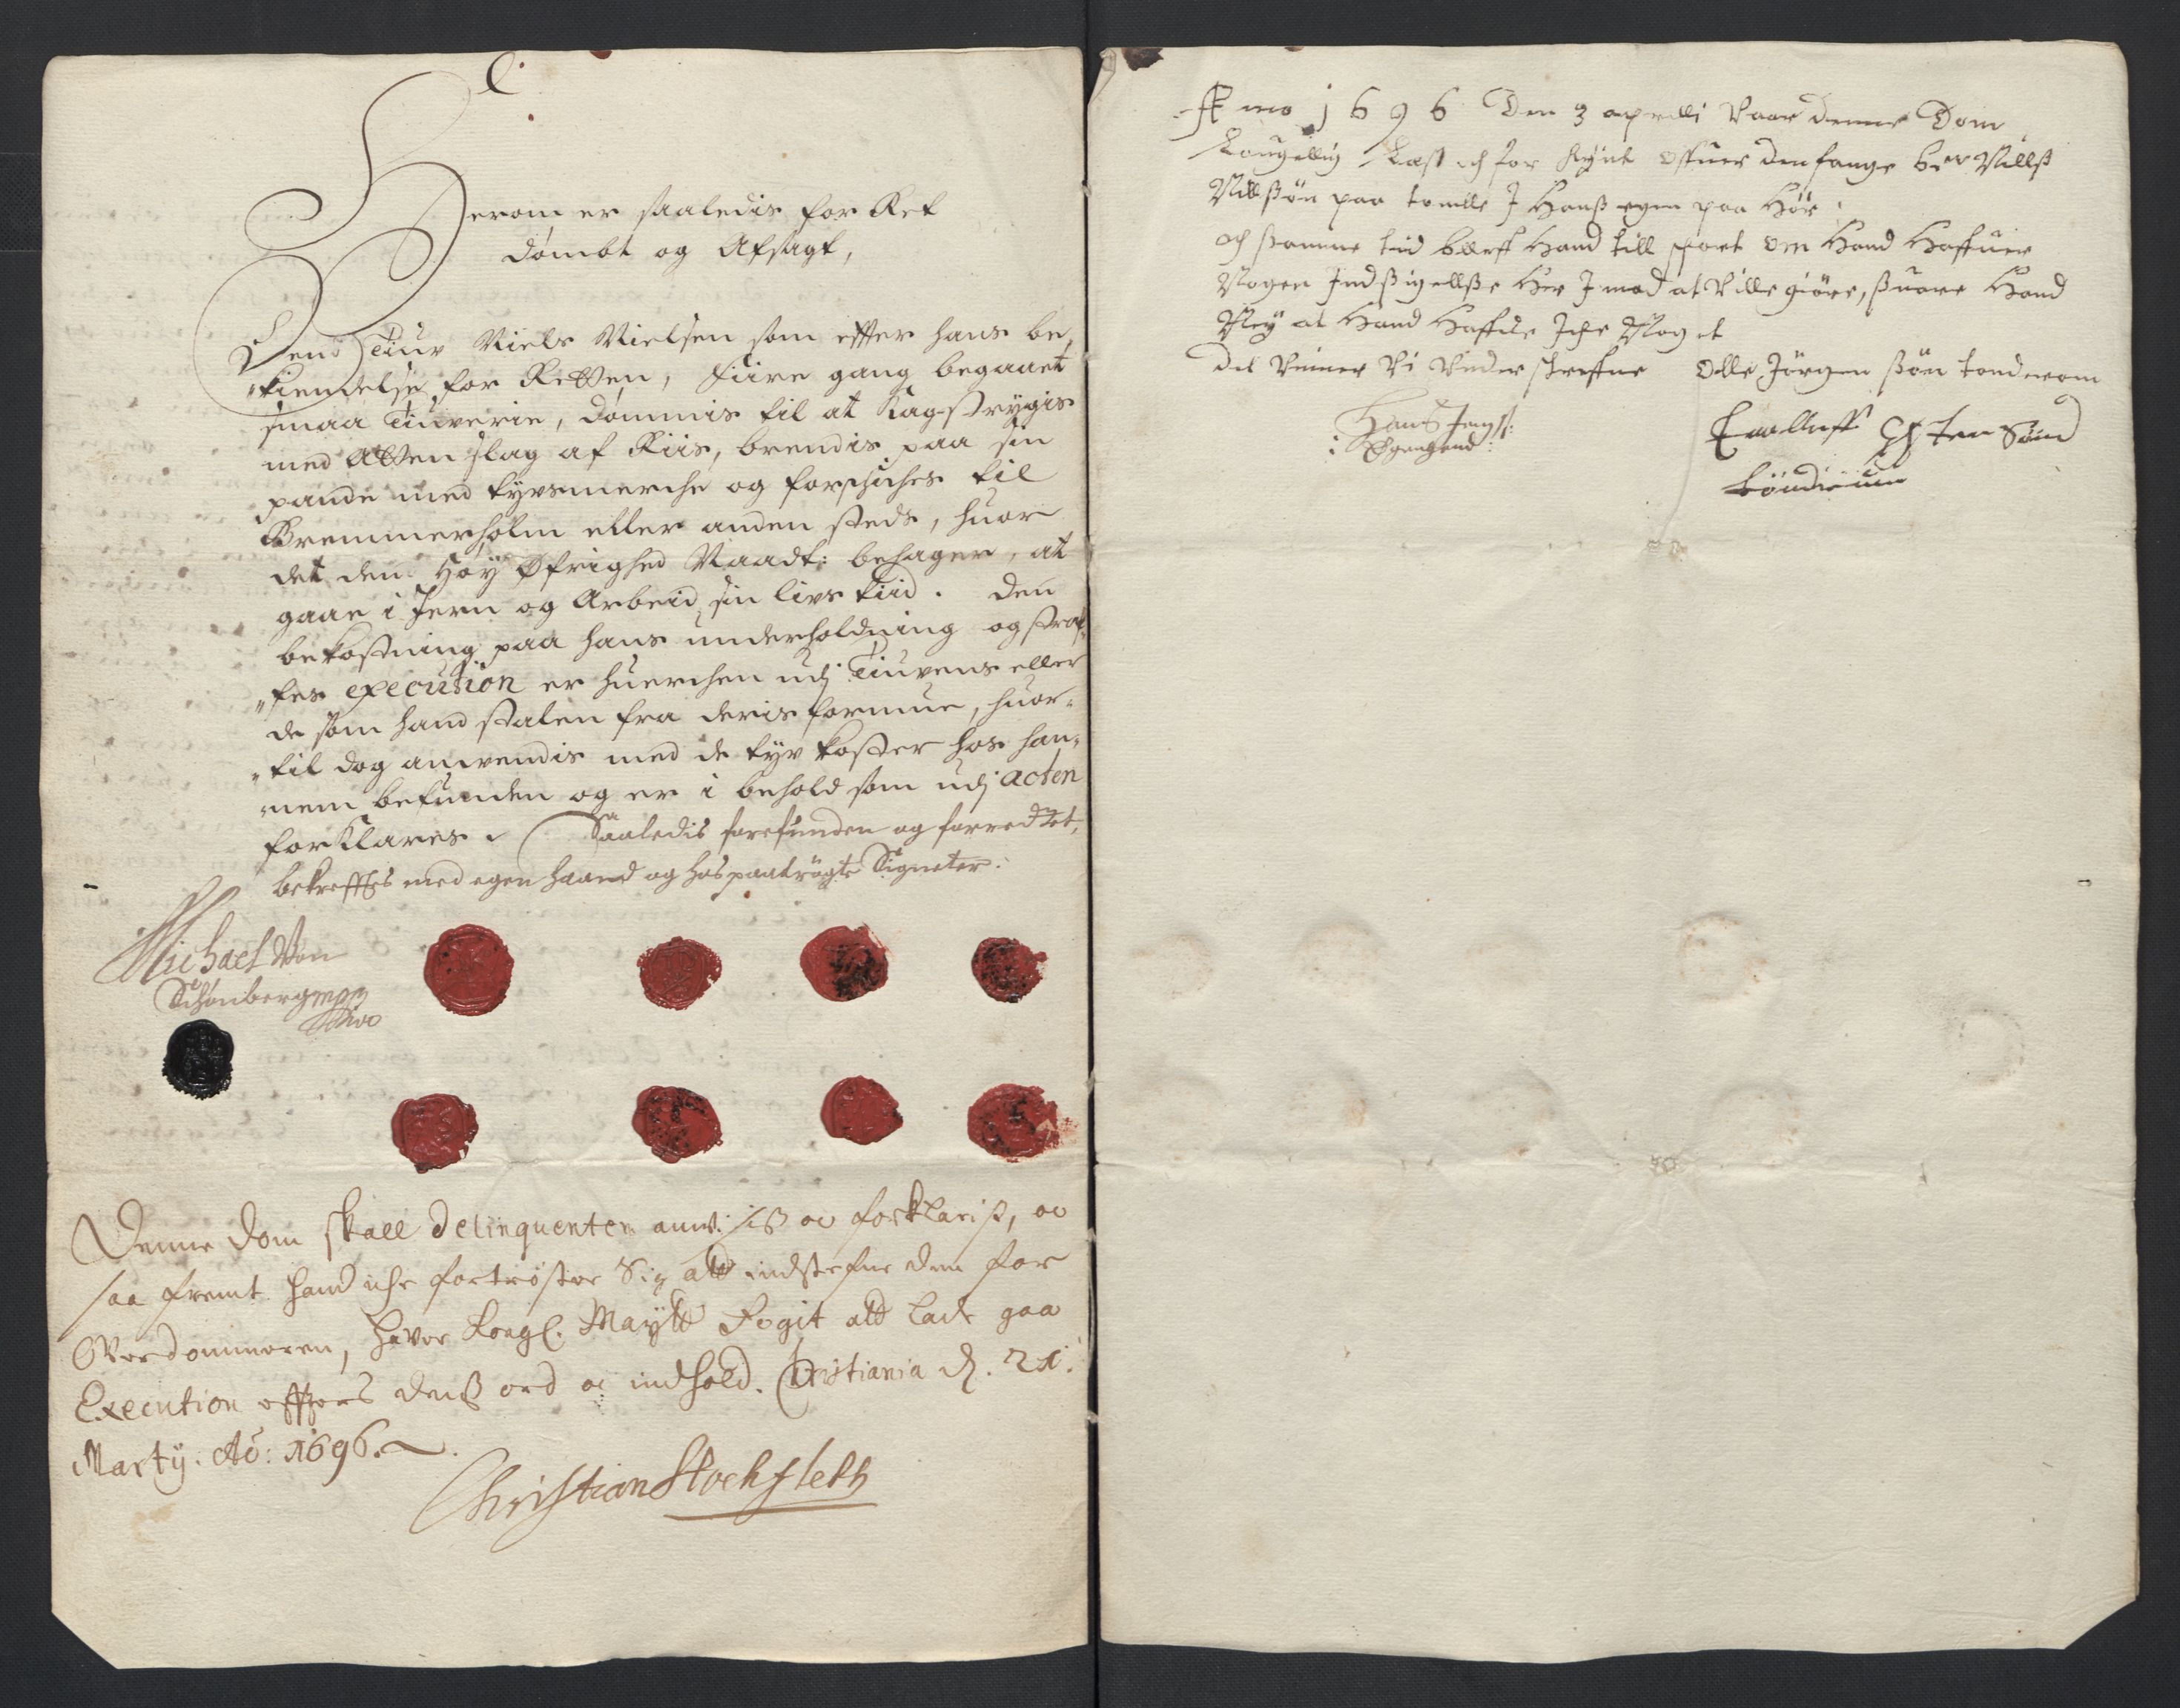 Herom er saaledis for Ret
dømbt og Afsagt,
Denne Tiuv Niels Nielsen som efter hans be,,
,,kiendelse for Retten, fiire gang begaaet
smaa Tiuverie, dømmis til at Kag-strygis
med Atten slag af Riis, brendis paa sin
pande med tyvsmerche og forschiches til
Bremmerholm eller anden steds, huor
det den Høy Øfrighed Naadt: behager, at
gaae i Jern og Arbeid sin livs tiid. Den
bekostning paa hans underholdning og straf,,
,,fes execution er huerchen udj Tiuvens eller
de som hand stalen fra deris formue, huor-
,,til dog anvendis med de tyv koster hos han,,
,,nem befunden og er i behold som udj acten
forklares. Saaledis forefunden og forrettet,
bekreftes med egen haand og hos paatrögte Signeter.
Michael Von
Schönberg mpp
Denne Dom skall Delinquenten anvisis oc forklaris, oc
saa fremt hand iche fortröster Sig att indstefne den for
Overdommeren, haver Kongl. Maytt Fogit att lade gaa
Execution efter dens ord oc indhold. Christiania d. 21.
Martij. Ao: 1696.
Christian Stockfleth
Anno 1696 Den 3 aprilli Vaar denne Dom
Lougellig Læst och for Kynt offuer den fange Ved Nillß
Nillßøn paa tomlle J Hanß egen paa Hør
och ßamme tiid bleff Hand till spurt om Hand Haffuer
Nogen Jndßigellße Her J mod at Ville giöre, ßuare Hand
Ney at Hand Haffde Jche Noget
Det Vinner Vi Vnder skreffne Olle Jörgen ßøn tonderom
Hans Jens S: